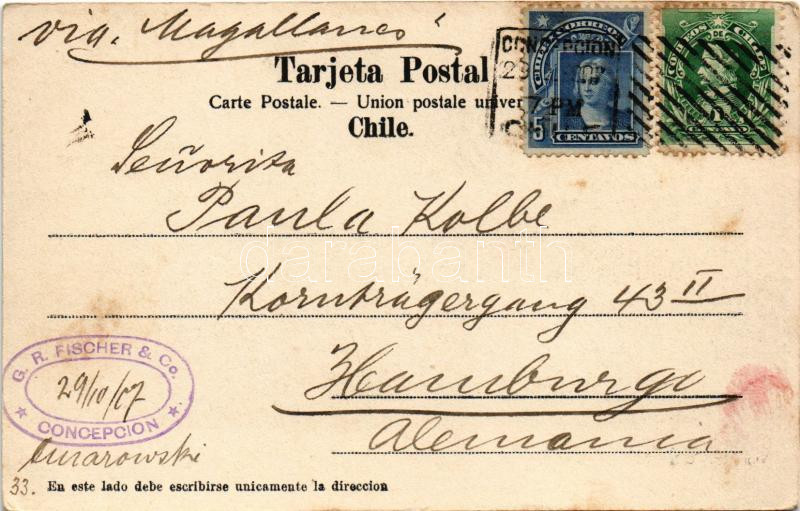 via. Magallanes
Tarjeta Postal
Carte Postale. — Union postale univer
Chile.
CORREOS
5 CENTAVOS
CORREOS DE CHILE
CENTAVO
29
7-PM
Señorita
Paula Kolbe
Kornträgergang 43 II
Hamburgo
Alemania
G. R. FISCHER & Co.
29/10/07
CONCEPCION
33. En este lado debe escribirse unicamente la direccion
darabanth